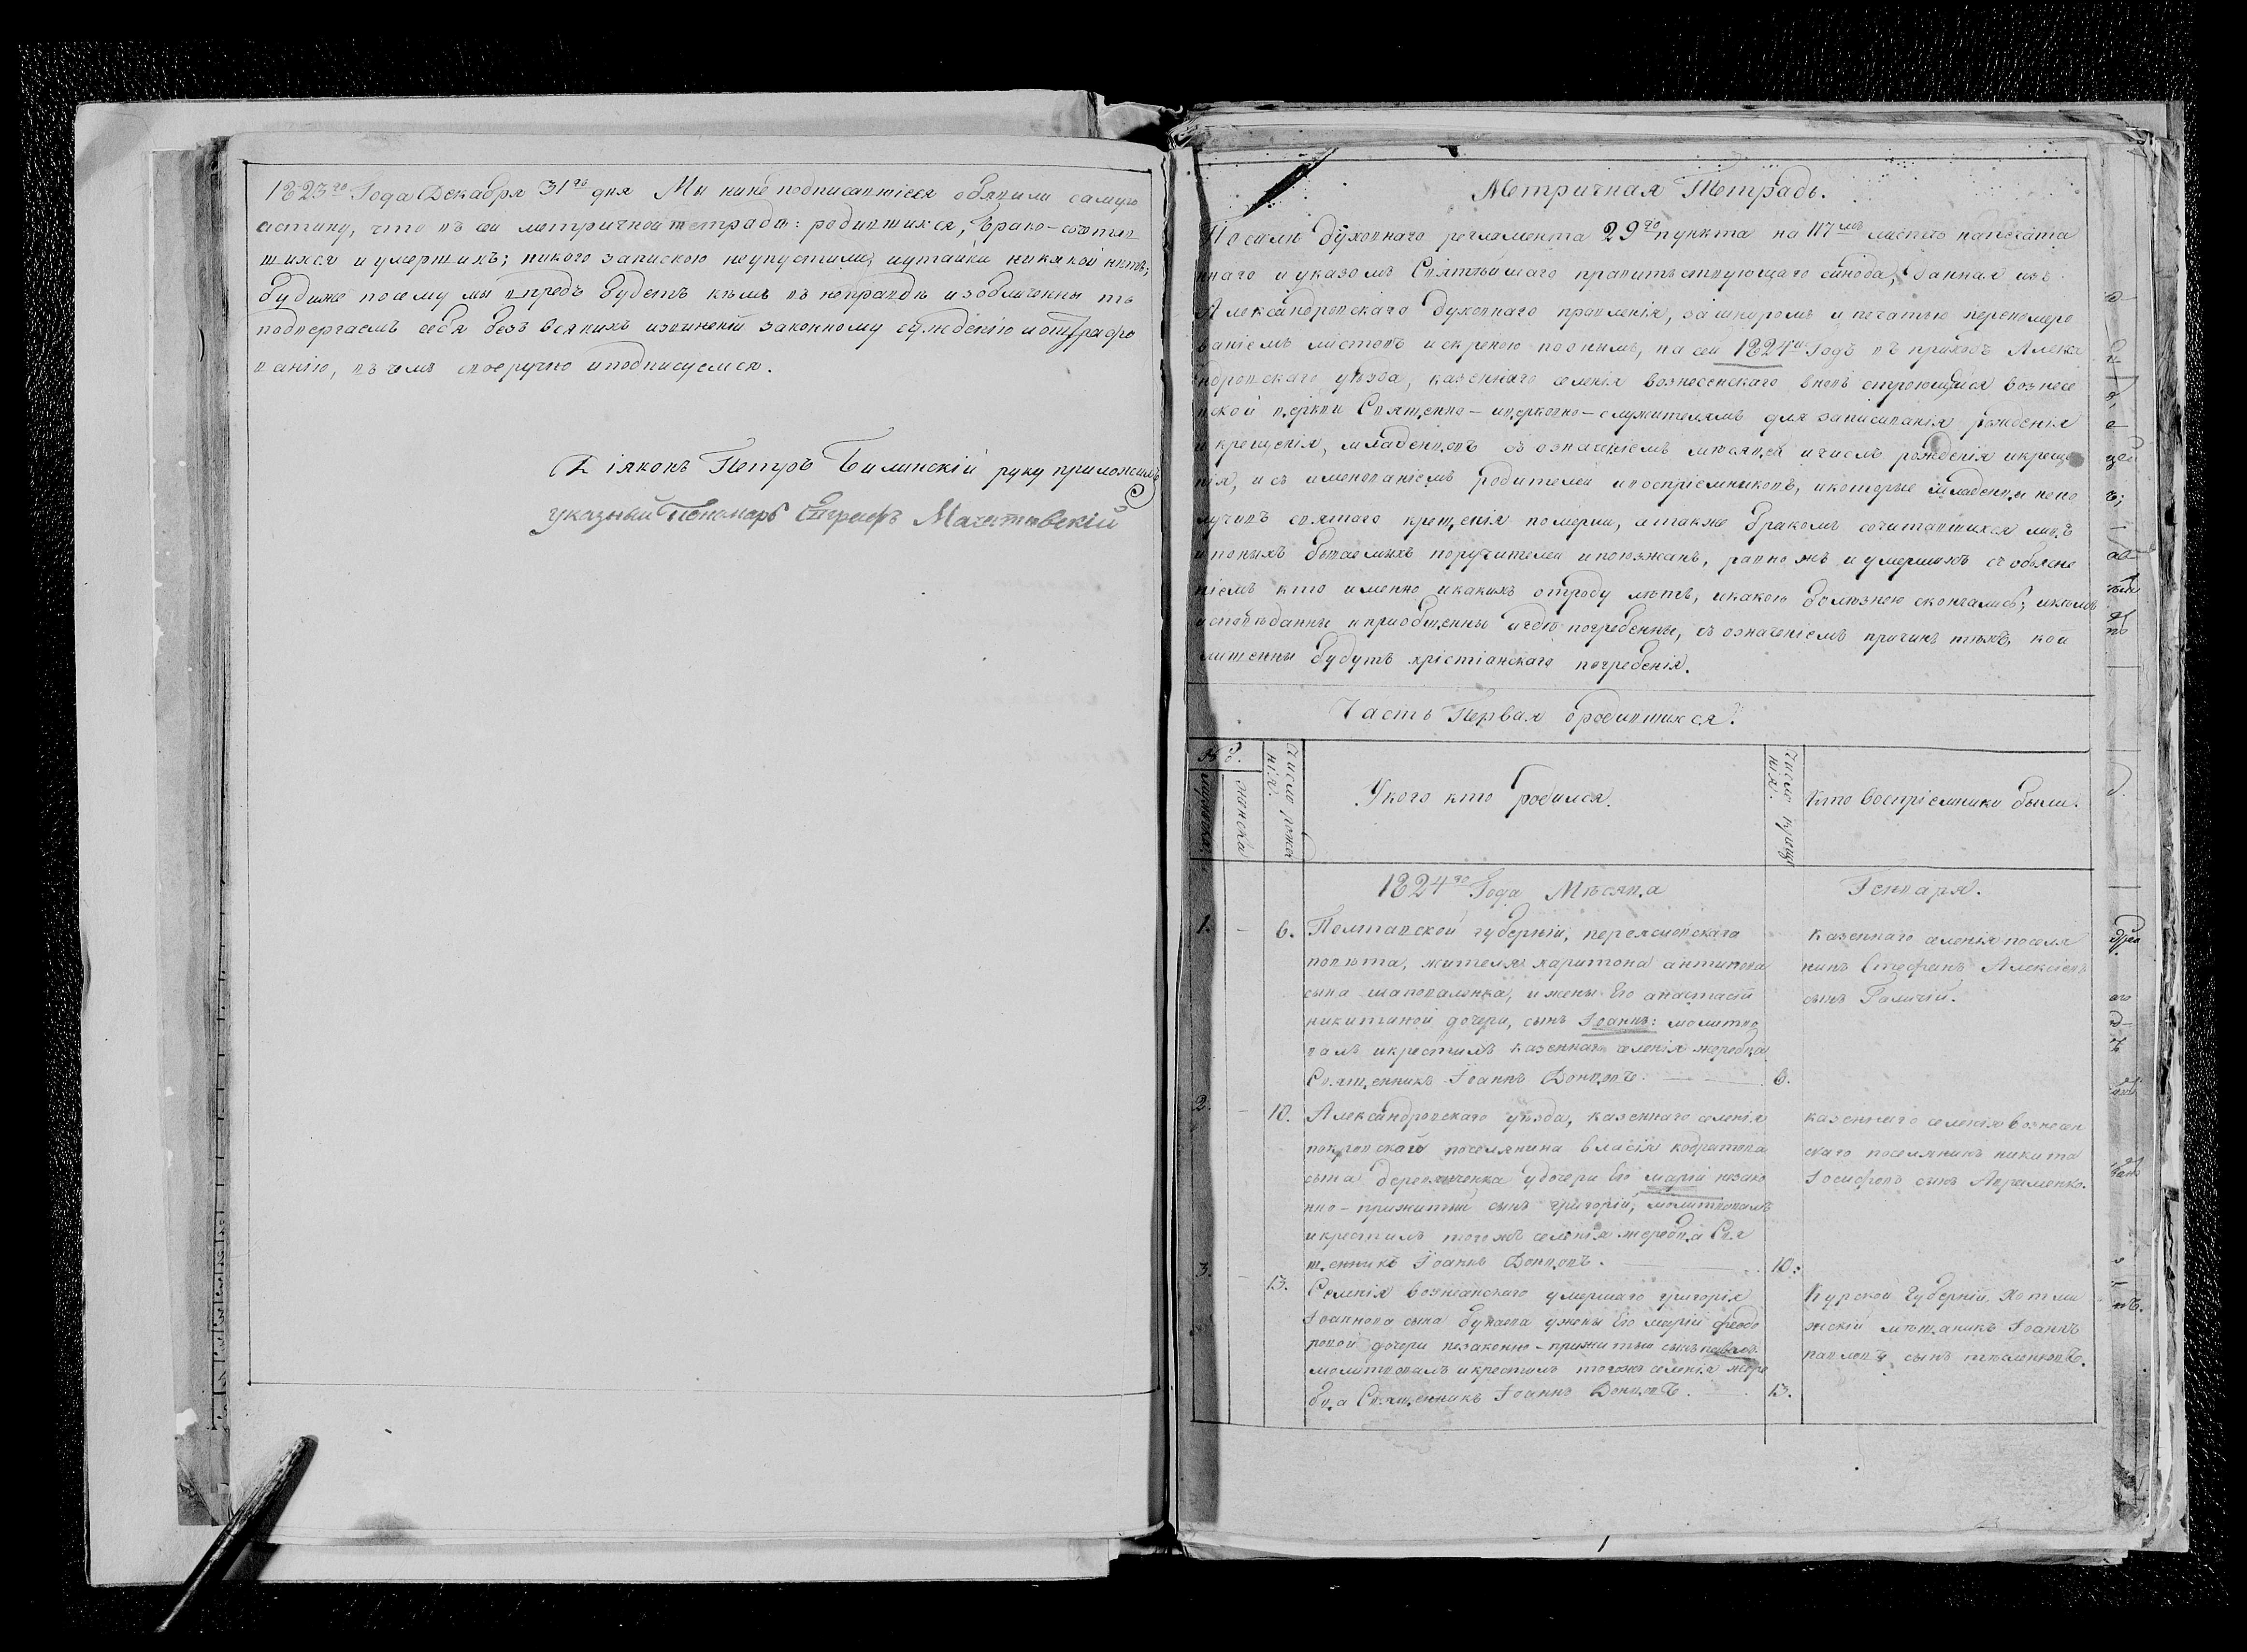 1823го Года Декабря 31го дня Мы ниже подписавшіеся объявили самую
истину, что въ сей метричной тетради: родившихся, брако-сочетав
шихся и умершихъ; никого запискою неупустили, иутайки никакой нѣтъ;
будиже посему мы впредь будетъ кѣмъ въ неправдѣ изобличенны то
подвергаемъ себя безъ всякихъ извиненій законному сужденію иоштрафо
ванію, въ чемъ своеручно иподписуемся.
Діяконъ Петръ Билинскій руку приложилъ
указный Пономарь Евграфъ
Метричная Тетрадь.
Посилѣ духовнаго регламента 29го пункта на 117мъ листѣ напечата
ннаго иуказомъ Святѣйшаго правительствующаго синода, данная изъ
Александровскаго духовнаго правленія, зашнуромъ ипечатью перенумеро
ваніемъ листовъ искрепою поонымъ, на сей 1824й Годъ въ приходъ Алекса
ндровскаго уѣзда, казеннаго селенія вознесенскаго вновь строющейся вознесе
нской церкви Священно-церковно-служителямъ для записыванія рожденія
икрещенія, младенцовъ съ означеніемъ мѣсяцей ичиселъ рожденія икреще
нія, исъ именованіемъ родителей ивоспріемниковъ, икоторые младенцы непо
лучивъ святаго крещенія померли, атакже бракомъ сочитавшихся лицъ
ипоныхъ бываемыхъ поручителей ипоюзжанъ, равно жъ иумершихъ съ объясне
ніемъ кто именно икакихъ отроду лѣтъ, икакою болѣзнею скончались; икѣмъ
исповѣданны иприобщенны игдѣ погребенны, съ означеніемъ причинъ тѣхъ, кои
лишенны будутъ хрістіанскаго погребенія.
Часть Первая ородившихся.
№ д.
мужеска.
женска
Число рожде
нія.
Укого кто родился.
Число креще
нія.
Кто Воспріемники были.
1824го Года Мѣсяца Генваря.
1. - 6. Полтавской губерніи, переясловскаго
повѣта, жителя харитона антипова
сына шаповаленка, ижены Его анастасіи
никитиной дочери, сынъ Іоаннъ: молитво
валъ икрестилъ казеннаго селенія жеребца
Священникъ Іоаннъ Донцовъ. 6.
Казеннаго селенія поселя
нинъ Стефанъ Алексіевъ
сынъ Галичій.
2. - 10. Александровскаго уѣзда, казеннаго селенія
покровскаго поселянина власія кодратова
сына удочери Его маріи незако
нно-прижитый сынъ григорій, молитвовалъ
икрестилъ тогожъ селенія жеребца Свя
щенникъ Іоаннъ Донцовъ. 10.
казеннаго селенія вознесен
скаго поселянинъ никита
Іосифовъ сынъ Авраменко.
3. - 13. Селенія вознесенскаго умершаго григорія
Іоаннова сына бунаева ужены Его маріи феодо
ровой дочери незаконно-прижитый сынъ павелъ:
молитвовалъ икрестилъ тогожъ селенія жере
бца Священникъ Іоаннъ Донцовъ. 13.
Курской Губерніи, Хотмы
жскій мѣщанинъ Іоаннъ
павловъ сынъ